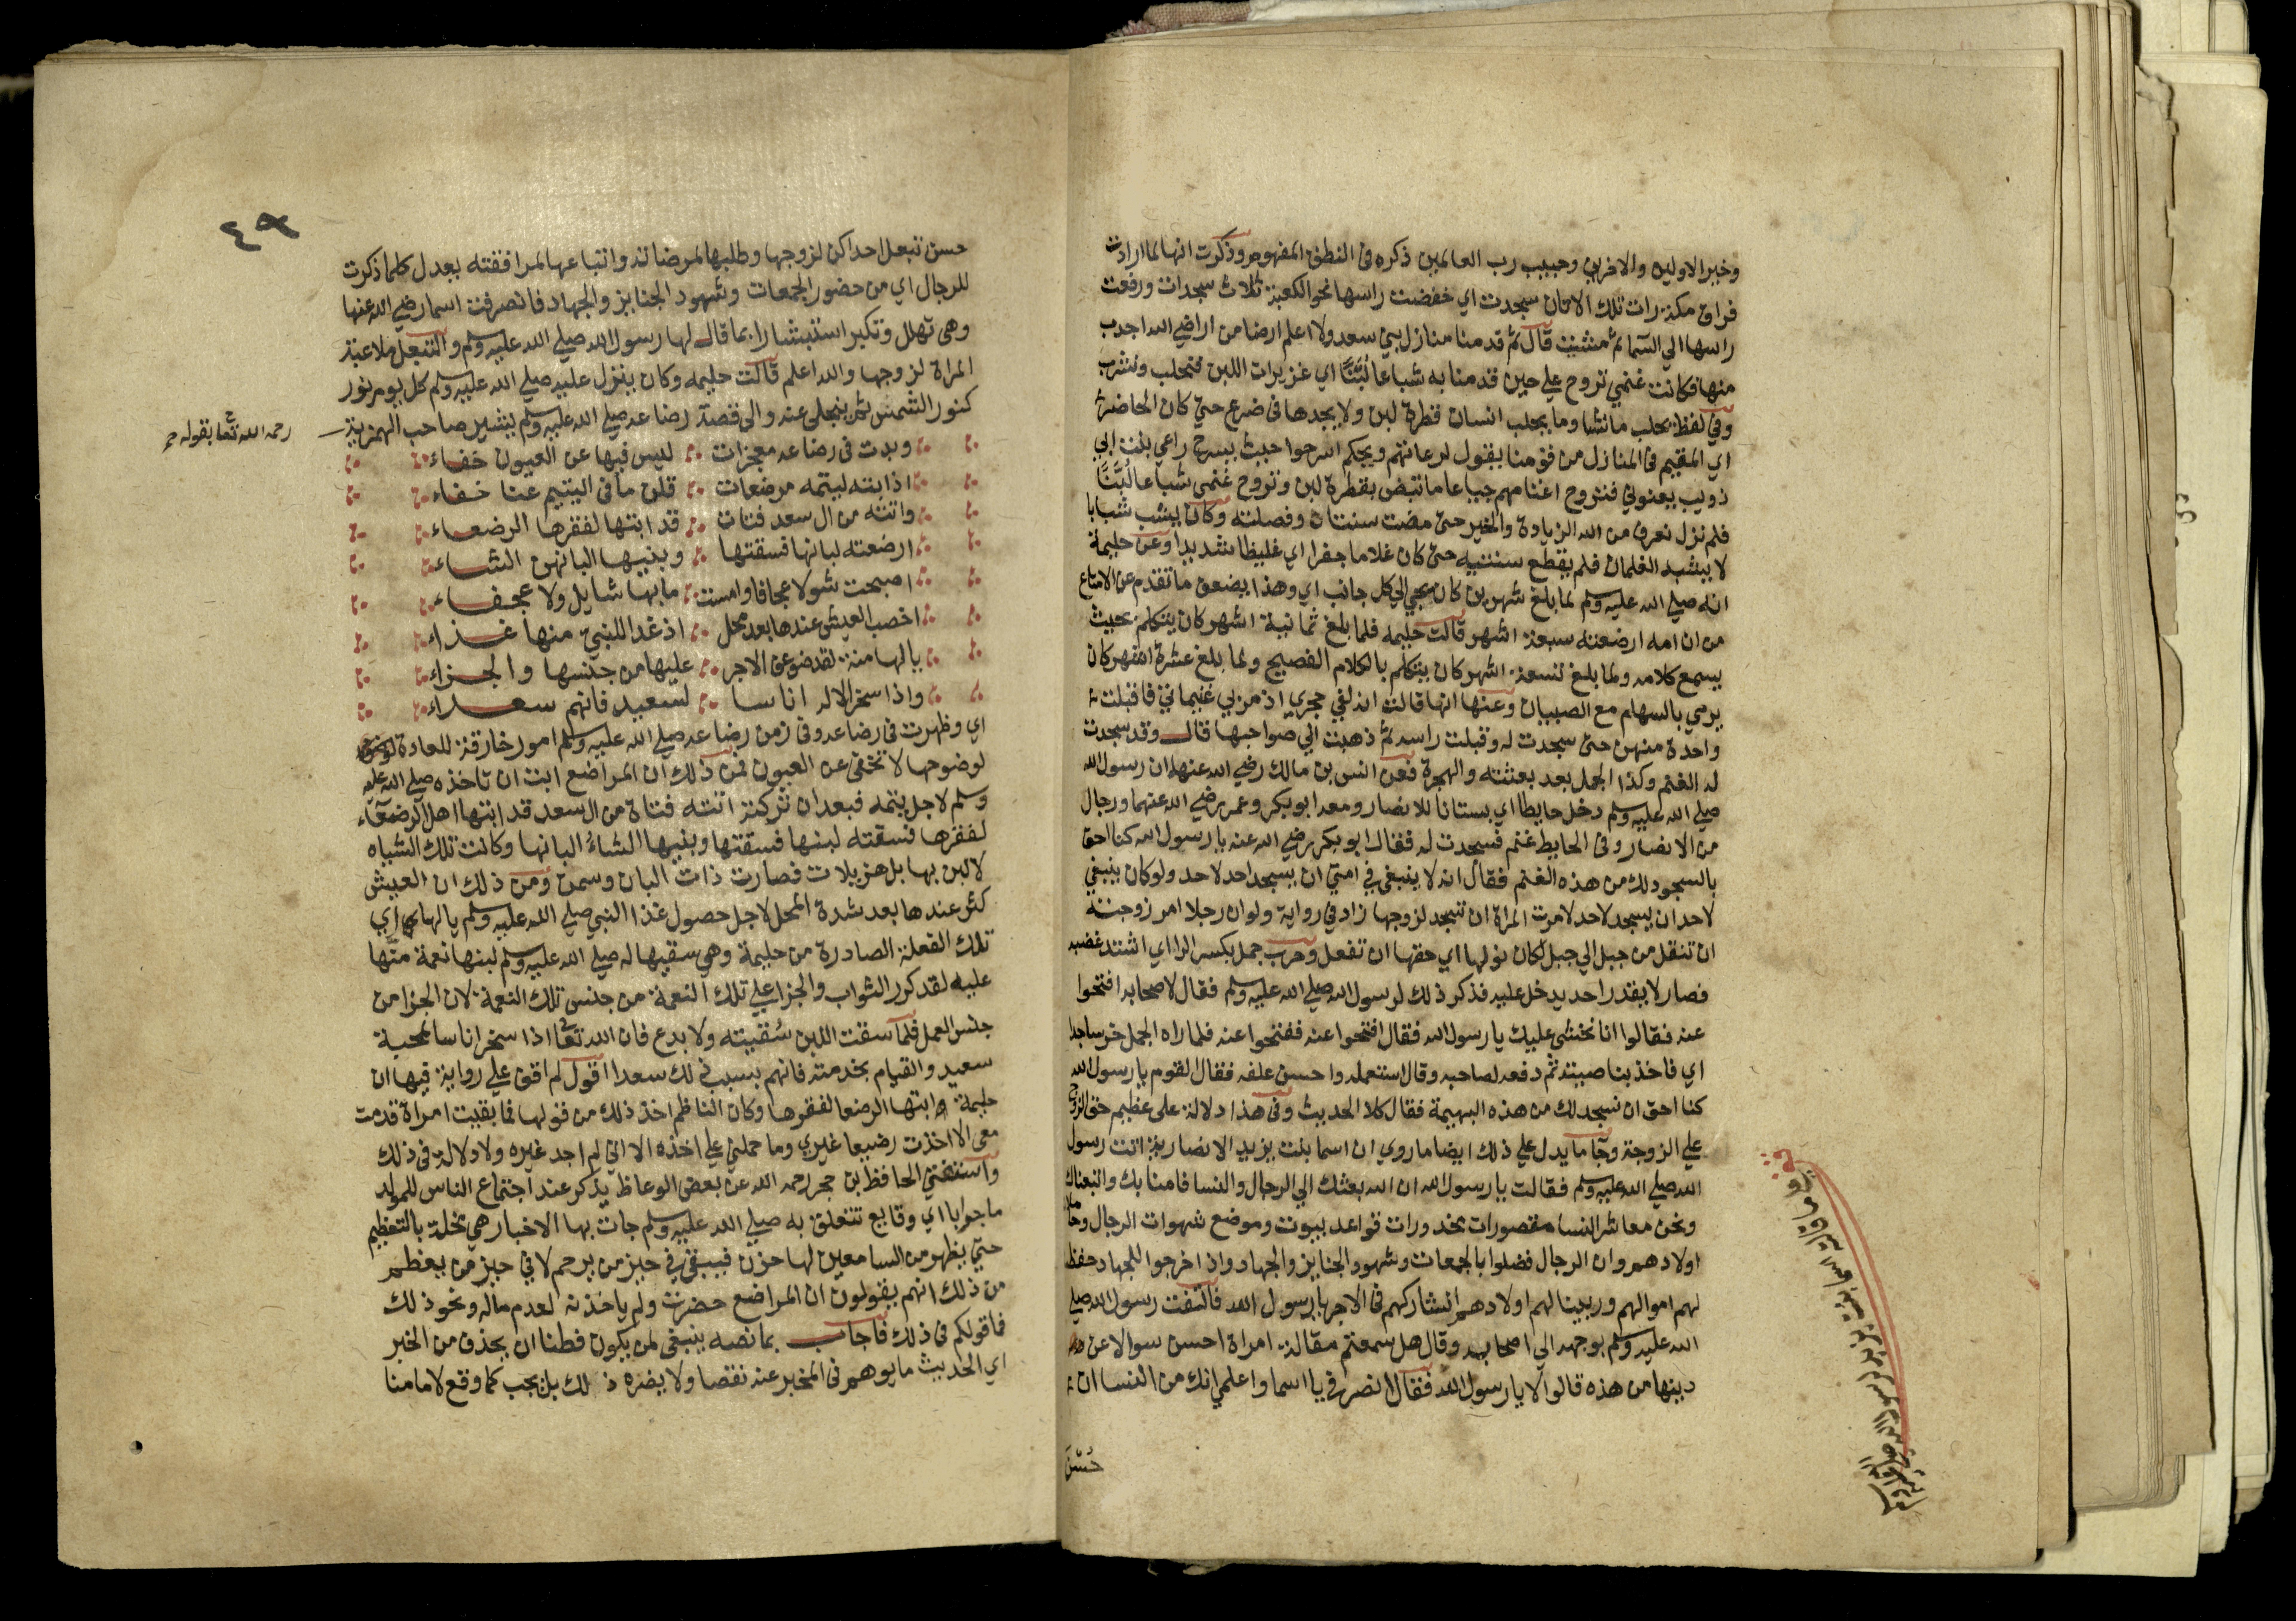 وخير الاولين والاخرين وحبيب رب العالمين ذكره في النطق المفهوم وذكرت انها لما ارادت
فراق مكة رات تلك الاتان سجدت اي خفضت راسها نحو الكعبة ثلاث سجدات ورفعت
راسها الي السما ثم مشيت قال ثم قدمنا منازل بني سعد ولا اعلم ارضا من اراضي الله اجدب
منها فكانت غنمي تروح علي حين قدمنا به شباعا لُبَّنًا اي غزيرات اللبن فنحلب ونشرب
وفي لفظ نحلب ما شئنا وما يحلب انسان قطرة لبن ولا يجدها في ضرع حتي كان الحاضر
اي المقيم في المنازل من قومنا يقول لرعاتهم ويحكم اسرحوا حيث يسرح راعي بنت ابي
ذويب يعنوني فتروح اغنامهم جياعا ما تبض بقطرة لبن وتروح غنمي شباعا لُبَّنًا
فلم نزل نعرف من الله الزيادة والخير حتي مضت سنتان وفصلته وكان يشب شبابا
لا يشبه الغلمان فلم يقطع سنتيه حتي كان غلاما جفرا اي غليظا شديدا وعن حليمة
انه صلي الله عليه وسلم لما بلغ شهرين كان يجي الي كل جانب اي وهذا يضعف ما تقدم عن الامتاع
من ان امه ارضعته سبعة اشهر قالت حليمه فلما بلغ ثمانية اشهر كان يتكلم بحيث
يسمع كلامه ولما بلغ تسعة اشهر كان يتكلم بالكلام الفصيح ولما بلغ عشرة اشهر كان
يرمي بالسهام مع الصبيان وعنها انها قالت انه لفي حجري اذ مر بي غنيماتي فاقبلت
واحدة منهن حتي سجدت له وقبلت راسه ثم ذهبت الي صواحبها قال وقد سجدت
له الغنم وكذا الجمل بعد بعثته والهجرة فعن انس بن مالك رضي الله عنه ان رسول الله
صلي الله عليه وسلم دخل حايطا اي بستانا للانصار ومعه ابو بكر وعمر رضي الله عنهما ورجال
من الانصار وفي الحايط غنم فسجدت له فقال ابو بكر رضي الله عنه يا رسول الله كنا احق
بالسجود لك من هذه الغنم فقال انه لا ينبغي في امتي ان يسجد احد لاحد ولو كان ينبغي
لاحد ان يسجد لاحد لامرت المراة ان تسجد لزوجها زاد في رواية ولو ان رجلا امر زوجته
ان تنقل من جبل الي جبل لكان نولها اي حقها ان تفعل وحرب جمل بكسر الرا اي اشتد غضبه
فصار لا يقدر احد يدخل عليه فذكر ذلك لرسول الله صلي الله عليه وسلم فقال لاصحابه افتحوا
عنه فقالوا انا نخشي عليك يا رسول الله فقال افتحوا عنه ففتحوا عنه فلما راه الجمل خر ساجدا
اي فاخذ بناصيته ثم دفعه لصاحبه وقال استعمله واحسن علفه فقال القوم يا رسول الله
كنا احق ان نسجد لك من هذه البهيمة فقال كلا الحديث وفي هذا دلالة علي عظيم حق الزوج
علي الزوجة وجا ما يدل علي ذلك ايضا ما روي ان اسما بنت يزيد الانصارية اتت رسول
الله صلي الله عليه وسلم فقالت يا رسول الله ان الله بعثك الي الرجال والنسا فامنا بك واتبعناك
ونحن معاشر النسا مقصورات مخدورات قواعد بيوت وموضع شهوات الرجال وحاملات
اولادهم وان الرجال فضلوا بالجمعات وشهود الجنايز والجهاد واذا خرجوا للجهاد حفظنا
لهم اموالهم وربينا لهم اولادهم انشاركهم في الاجر يا رسول الله فالتفت رسول الله صلي
الله عليه وسلم بوجهه الي اصحابه وقال هل سمعتم مقالة امراة احسن سوالا عن
دينها من هذه قالوا لا يا رسول الله فقال انصرفي يا اسما واعلمي انك من النسا ان
حُسْنَ
قف علي ما قالته اسما بنت يزيد لرسول الله صلي الله عليه وسلم
٤٩
حسن تبعل احداكن لزوجها وطلبها لمرضاته واتباعها لمرافقته يعدل كلما ذكرت
للرجال اي من حضور الجمعات وشهود الجنايز والجهاد فانصرفت اسما رضي الله عنها
وهي تهلل وتكبر استبشارا بما قال لها رسول الله صلي الله عليه وسلم والتبعل ملاعبة
المراة لزوجها والله اعلم قالت حليمه وكان ينزل عليه صلي الله عليه وسلم كل يوم نور
كنور الشمس ثم ينجلي عنه والي قصة رضاعه صلي الله عليه وسلم يشير صاحب الهمزية
رحمه الله تعا بقوله
وبدت في رضاعه معجزات ليس فيها عن العيون خفاء
اذ ابته ليتمه مرضعات قلن ما في اليتيم عنا غناء
واتته من ال سعد فتات قد ابتها لفقرها الرضعاء
ارضعته لبانها فسقتها وبنيها البانهن الشاء
اصبحت شولا عجافا وامست ما بها شايل ولا عجفاء
اخصب العيش عندها بعد محل اذ غدا للنبي منها غذاء
يا لها منة لقد ضوعف الاجر عليها من جنسها والجزاء
واذا سخر الاله اناسا لسعيد فانهم سعداء
اي وظهرت في رضاعه وفي زمن رضاعه صلي الله عليه وسلم امور خارقة للعادة
لوضوحها لا تخفي عن العيون فمن ذلك ان المراضع ابت ان تاخذه صلي الله عليه
وسلم لاجل يتمه فبعد ان تركنه اتته فتاة من ال سعد قد ابتها اهل الرضعاء
لفقرها فسقته لبنها فسقتها وبنيها الشاء البانها وكانت تلك الشياه
لا لبن بها بل هزيلات فصارت ذات البان وسمن ومن ذلك ان العيش
كثر عندها بعد شدة المحل لاجل حصول غذا النبي صلي الله عليه وسلم يا لها اي
تلك الفعلة الصادرة من حليمة وهي سقيها له صلي الله عليه وسلم لبنها نعمة منها
عليه لقد كرر الثواب والجزا علي تلك النعمة من جنس تلك النعمة لان الجزا من
جنس العمل فلما سقت اللبن سُقيته ولا بدع فان الله تعا اذا سخر اناسا لمحبة
سعيد والقيام بخدمته فانهم بسبب ذلك سعدا اقول لم اقف علي رواية فيها ان
حليمة ابتها الرضعا لفقرها وكان الناظم اخذ ذلك من قولها فما بقيت امراة قدمت
معي الا اخذت رضيعا غيري وما حملني علي اخذه الا اني لم اجد غيره ولا دلالة في ذلك
واستفتي الحافظ بن حجر رحمه الله عن بعض الوعاظ يذكر عند اجتماع الناس للمولد
ماجرايا اي وقايع تتعلق به صلي الله عليه وسلم جات بها الاخبار هي مخلة بالتعظيم
حتي يظهر من السامعين لها حزن فيبقي في حيز من يرحم لا في حيز من يعظم
من ذلك انهم يقولون ان المراضع حضرت ولم ياخذنه لعدم ماله ونحو ذلك
فما قولكم في ذلك فاجاب بما نصه ينبغي لمن يكون فطنا ان يحذف من الخبر
اي الحديث ما يوهم في المخبر عنه نقصا ولا يضره ذلك بل يجب كما وقع لامامنا